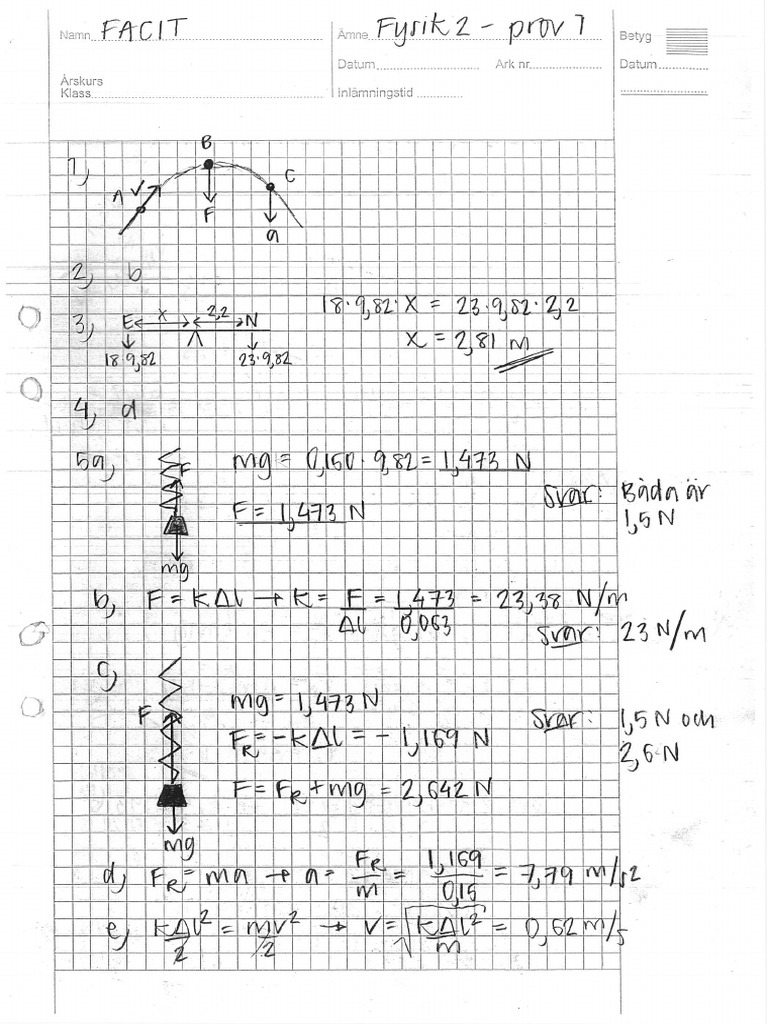 Namn FACIT
Ämne Fysik 2 - prov 1
Betyg
Datum
Ark nr
Datum
Årskurs
Klass
Inlämningstid
1,
B
A
V
C
F
a
2, b
3, E x 2,2 N
18·9,82 23·9,82
18·9,82·X = 23·9,82·2,2
X = 2,81 m
4, d
5a, F
mg = 0,150·9,82 = 1,473 N
F = 1,473 N
Svar: Båda är
1,5 N
mg
b, F = kΔl → k = F/Δl = 1,473/0,063 = 23,38 N/m
Svar: 23 N/m
c,
F
mg = 1,473 N
FR = -kΔl = - 1,169 N
F = FR + mg = 2,642 N
Svar: 1,5 N och
2,6 N
mg
d, FR = ma → a = FR/m = 1,169/0,15 = 7,79 m/s2
e, kΔl²/2 = mv²/2 → V = √kΔl²/m = 0,62 m/s